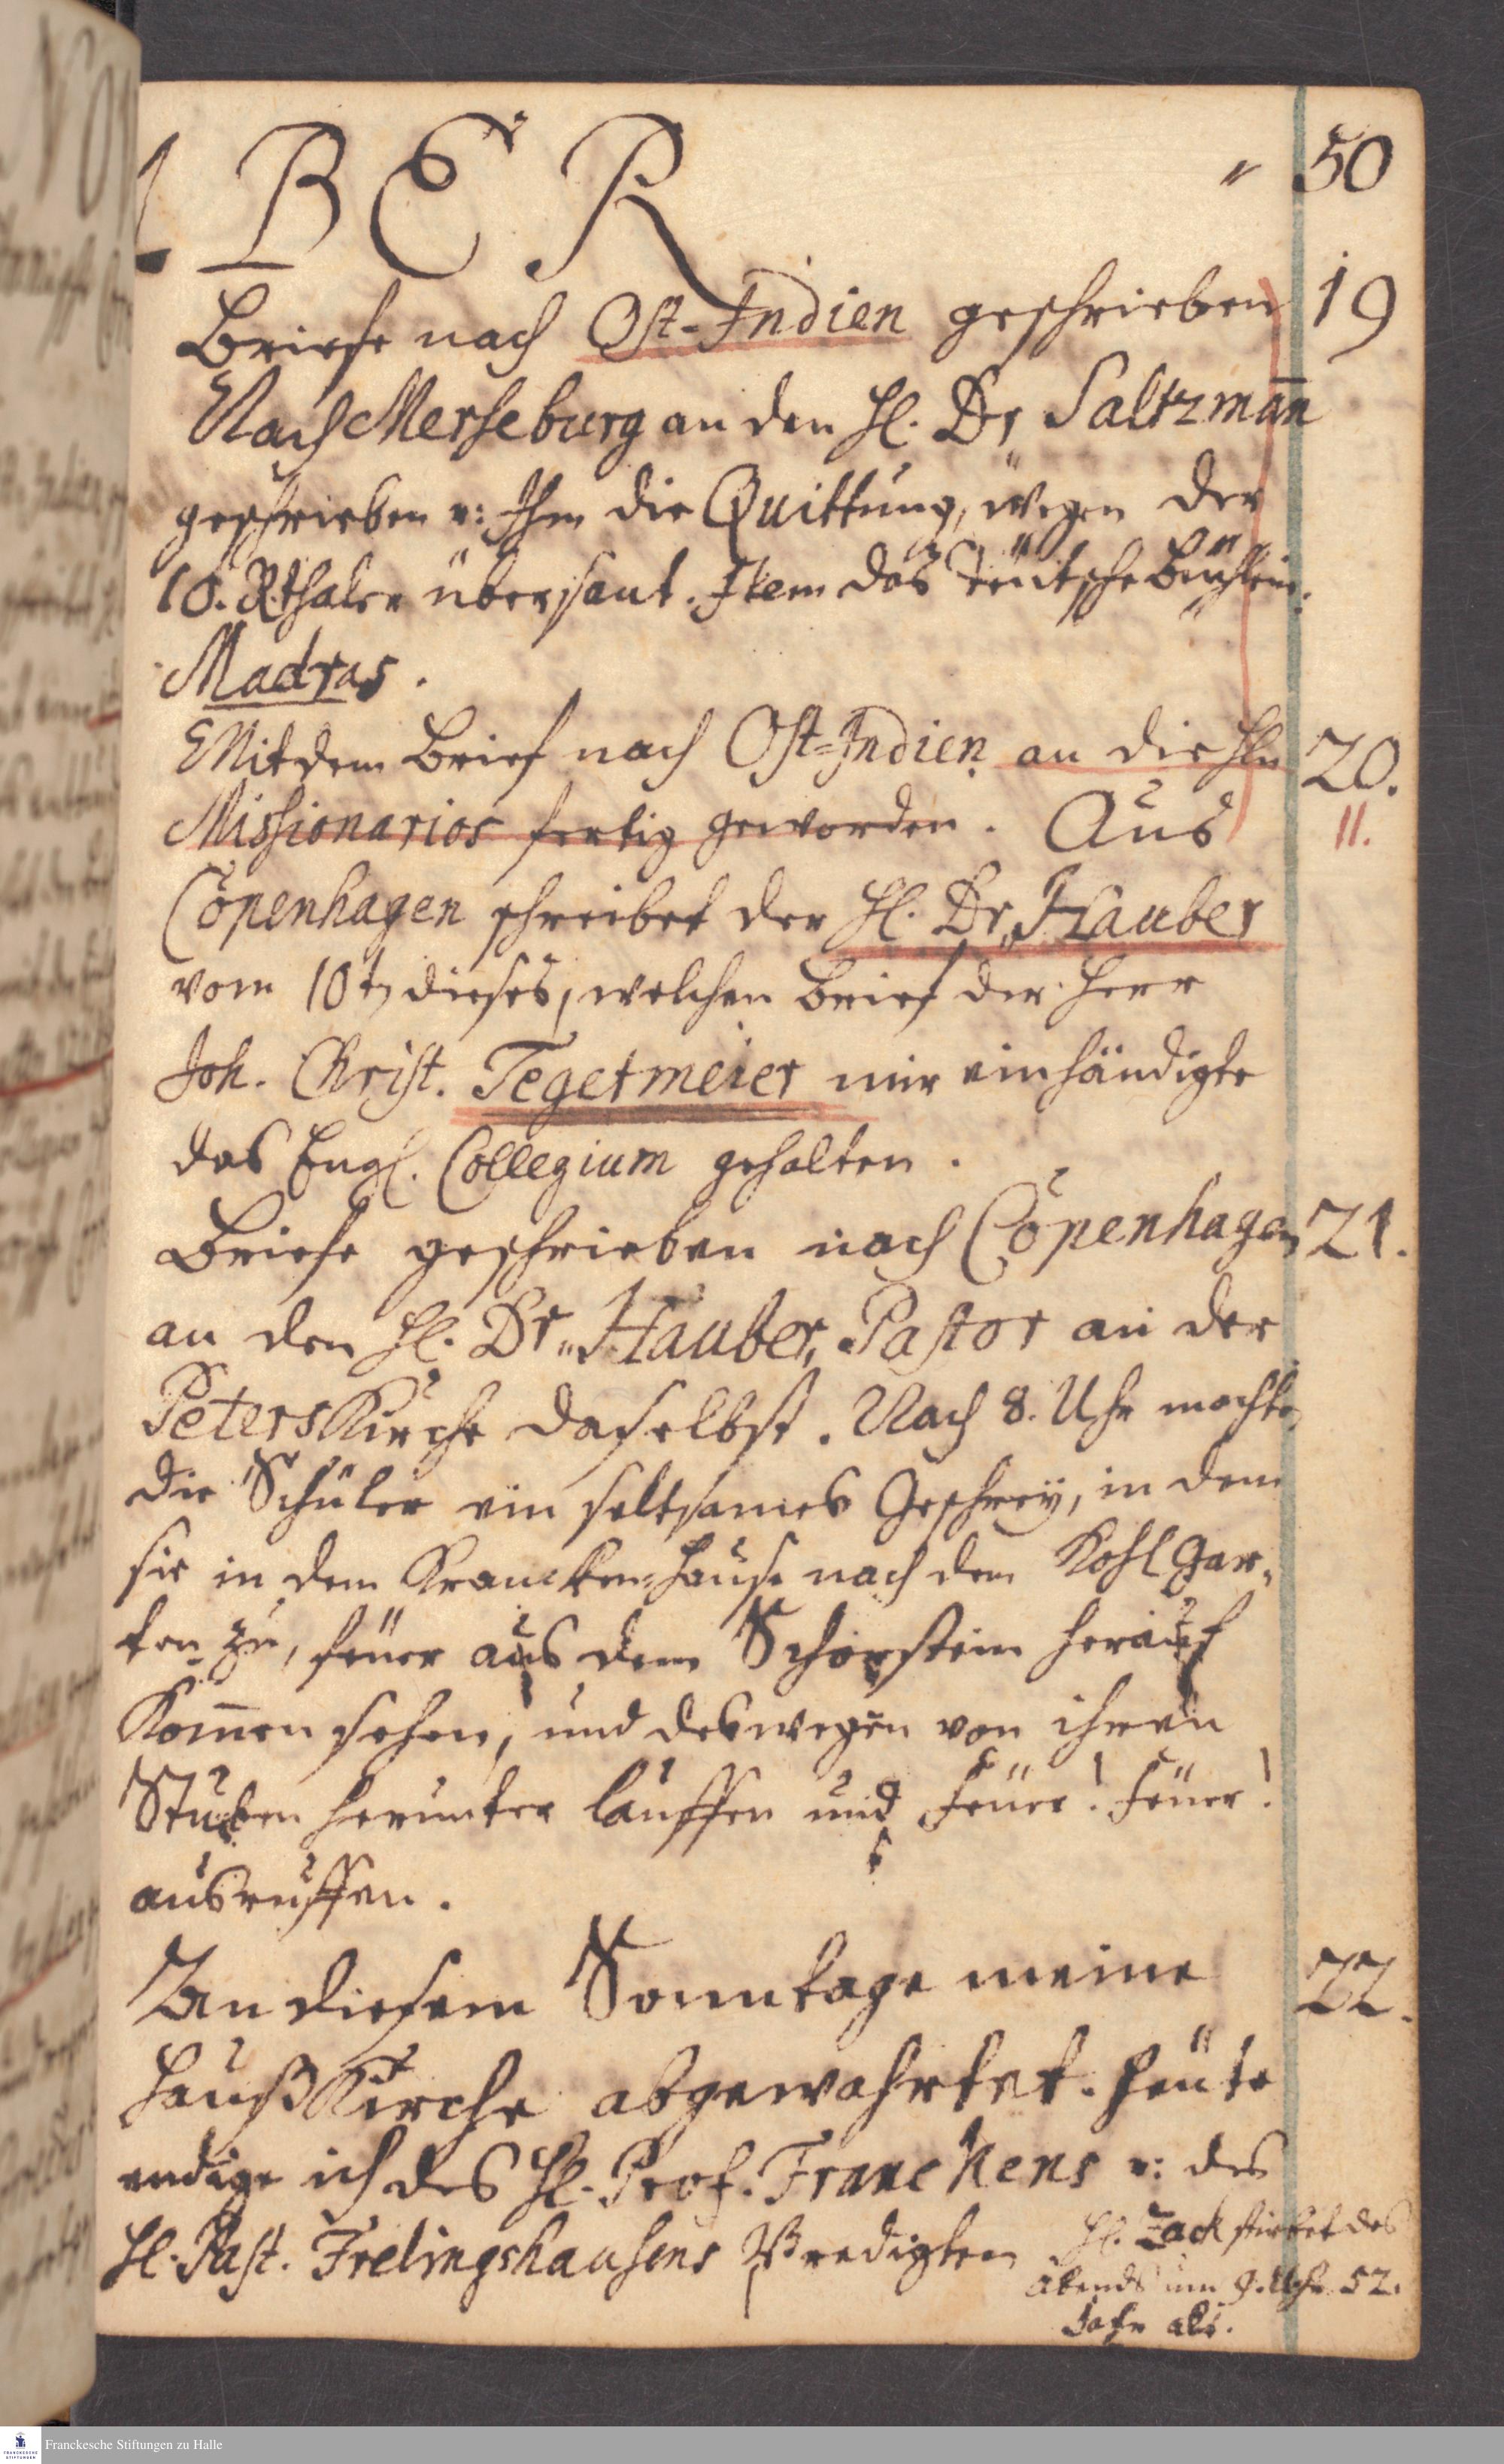 BER " 50
Briefe nach Ost-Indien geschrieben 19
Nach Merseburg an den Hl. Dr Saltzmañ
geschrieben u: Ihm die Quittung, wegen der
10. Rthaler übersant. Item das teütsche Büchlein:
Madras.
Mit dem Brief nach Ost-Indien an die Hln 20.
Missionarios fertig geworden. Aus 11.
Copenhagen schreibet der Hl. Dr. Hauber
vom 10t dieses, welchen Brief der Herr
Joh. Christ. Tegetmeier mir einhändigte
das Engl. Collegium gehalten.
Briefe geschrieben nach Copenhagen 21.
an den Hl. Dr. Hauber, Pastor an der
PetersKirche daselbst. Nach 8. Uhr machte
die Schüler ein seltsames Geschrey, in dem
sie in dem Krancken-Hause nach dem Kohlgar-
ten zu, feüer aus dem Schorstein herauf
Kom̄en sehen, und deswegen von ihren
Stuben herunter lauffen und Feüer! Feüer!
ausruffen.
An diesem Sonntage meine 22.
HaußKirche abgewahrtet. Heüte
endige ich des Hl. Prof. Franckens u: des
Hl. Past. Frelingshausens Predigten
Hl. Zack stirbet des
Abends um 9. Uhr 52.
Jahr alt.
Franckesche Stiftungen zu Halle